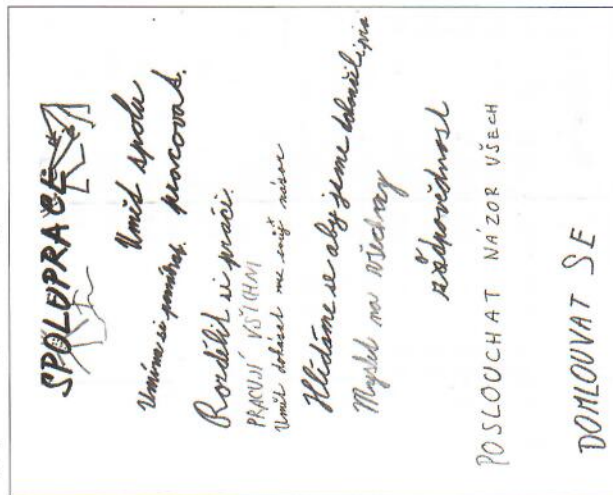 SPOLUPRÁCE
Umět spolu
pracovat.
Umíme si pomáhat.
Rozdělit si práci.
PRACUJÍ VŠICHNI
Umět dokázat
svůj názor
Hlídáme se aby jsme dokončili
Myslet na všechny
zodpovědnost
POSLOUCHAT NÁZOR VŠECH
DOMLOUVAT SE